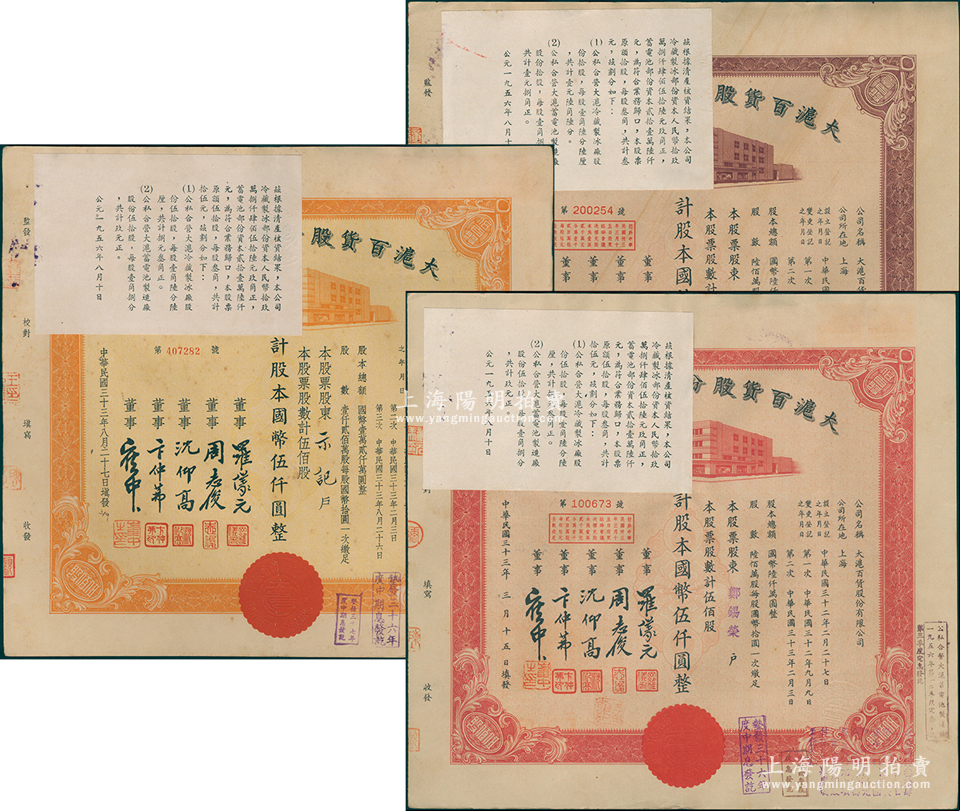 茲根據清產核資結果，本公司
冷藏製冰部份資本人民幣拾玖
萬捌仟肆佰伍拾陸元玖角正，
蓄電池部份資本貳拾壹萬陸仟
元，為符合業務歸口，本股票
原額拾股，每股叁角，共計叁
元，茲劃分如下：
(1)公私合營大滬冷藏製冰廠股
份拾股，每股壹角陸分陸厘
，共計壹元陸角陸分
(2)公私合營大滬蓄電池製造廠
股份拾股，每股壹角捌分
共計壹元捌角正。
公元一九五六年八月十
監發
大滬百貨股
第200254號
計股本國
董事
董事
董事
董事
本股票股東
本股票股數計
公司名稱 大滬百貨
公司所在地 上海
設立登記之年月日 中華民國
變更登記之年月日 第一次
第二次
股本總額 國幣陸仟
股數 陸佰萬股
茲根據清產核資結果，本公司
冷藏製冰部份資本人民幣拾玖
萬捌仟肆佰伍拾陸元玖角正，
蓄電池部份資本貳拾壹萬陸仟
元，為符合業務歸口，本股票
原額伍拾股，每股叁角，共計
拾伍元，茲劃分如下：
(1)公私合營大滬冷藏製冰廠股
份伍拾股，每股壹角陸分陸
厘，共計捌元叁角正。
(2)公私合營大滬蓄電池製造廠
股份伍拾股，每股壹角捌分
，共計玖元正。
公元一九五六年八月十日
監發
校對
填寫
收發
大滬百貨股
第407282號
之年月日
第二次 中華民國三十三年二月三日
第三次 中華民國三十三年八月二十六日
股本總額 國幣壹萬貳仟萬圓整
股數 壹仟貳佰萬股每股國幣拾圓一次繳足
本股票股東 示記 戶
本股票股數計伍佰股
計股本國幣伍仟圓整
董事 羅傑元
董事 周志俊
董事 沈仰高
董事 卞仲芾
董事
中華民國三十三年八月二十七日填發
茲根據清產核資結果，本公司
冷藏製冰部份資本人民幣拾玖
萬捌仟肆佰伍拾陸元玖角正，
蓄電池部份資本貳拾壹萬陸仟
元，為符合業務歸口，本股票
原額伍拾股，每股叁角，共計
拾伍元，茲劃分如下：
(1)公私合營大滬冷藏製冰廠股
份伍拾股，每股壹角陸分陸
厘，共計捌元叁角正。
(2)公私合營大滬蓄電池製造廠
股份伍拾股，每股壹角捌分
，共計玖元正。
公元一九五六年八月十日
填寫
收發
大滬百貨股份
第100673號
公司名稱 大滬百貨股份有限公司
公司所在地 上海
設立登記之年月日 中華民國三十二年二月二十七日
變更登記之年月日 第一次 中華民國三十二年九月九日
第二次 中華民國三十三年二月三日
股本總額 國幣陸仟萬圓整
股數 陸佰萬股每股國幣拾圓一次繳足
本股票股東 鄭錫榮 戶
本股票股數計伍佰股
計股本國幣伍仟圓整
董事 羅傑元
董事 周志俊
董事 沈仰高
董事 卞仲芾
董事
中華民國三十三年三月十五日填發
上海陽明拍賣
www.yangmingauction.com
上海陽明拍賣
www.yangmingauction.com